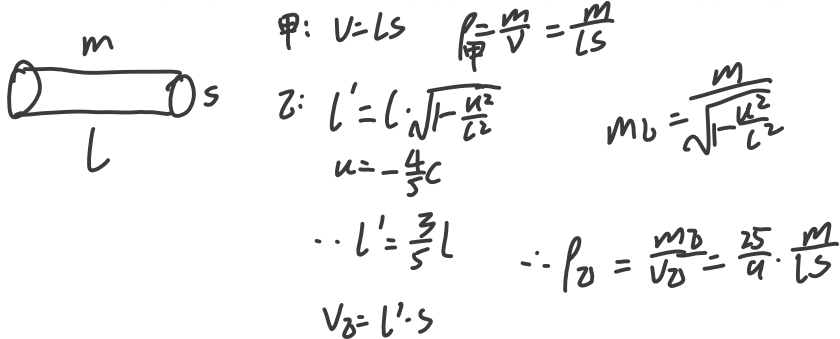 m
S
l
甲: V=LS ρ甲=m/V=m/LS
乙: l'=l·√(1-u²/c²) m乙=m/√(1-u²/c²)
u=-4/5c
∵ l'=3/5l ∴ρ乙=m乙/V乙=25/9·m/LS
V乙=l'·S